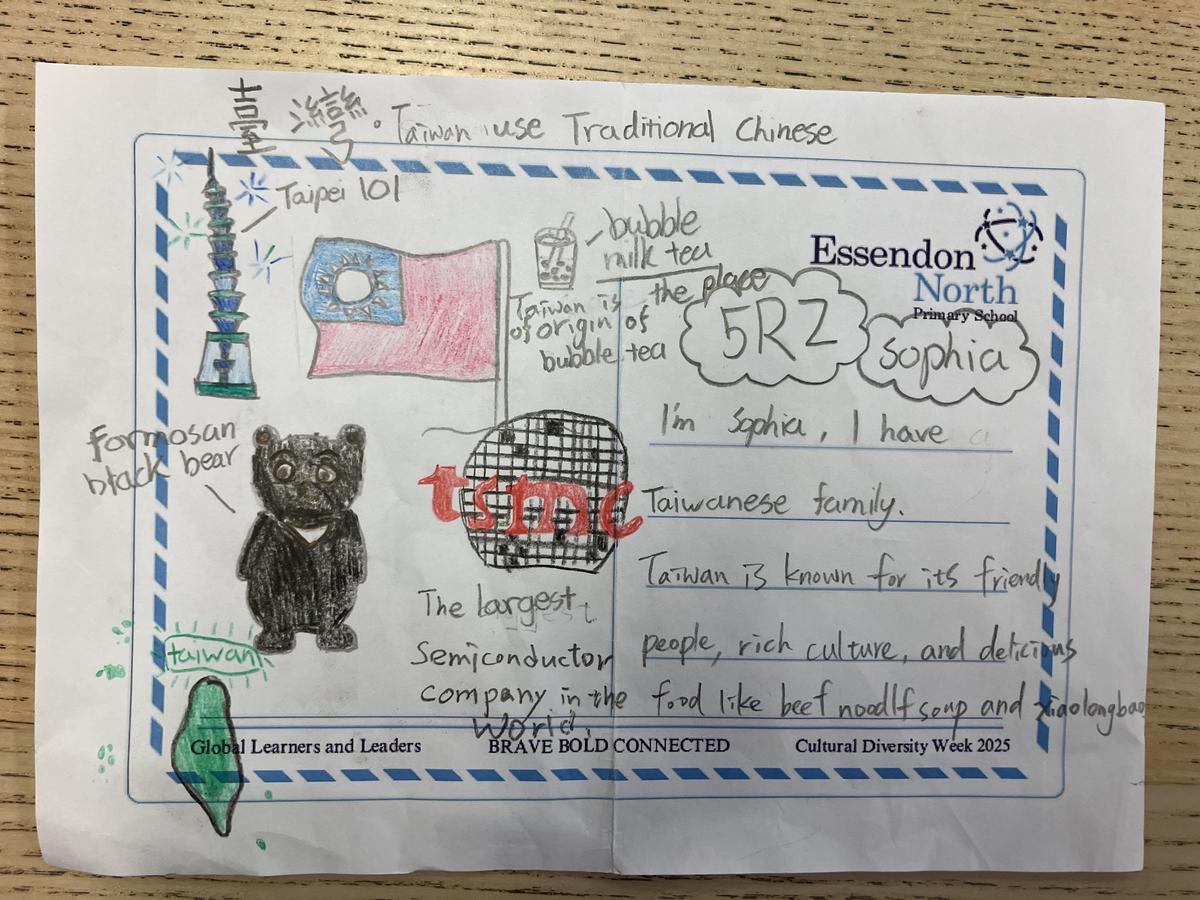 臺灣 · Taiwan use Traditional Chinese
Taipei 101
bubble
milk tea
Taiwan is the place
of origin of
bubble tea
Essendon
North
Primary School
5RZ
Sophia
I'm Sophia, I have a
Taiwanese family.
Taiwan is known for its friendly
people, rich culture, and delicious
food like beef noodlf soup and xiaolongbao
formosan
black bear
tsmc
The largest
Semiconductor
company in the
World.
taiwan
Global Learners and Leaders
BRAVE BOLD CONNECTED
Cultural Diversity Week 2025